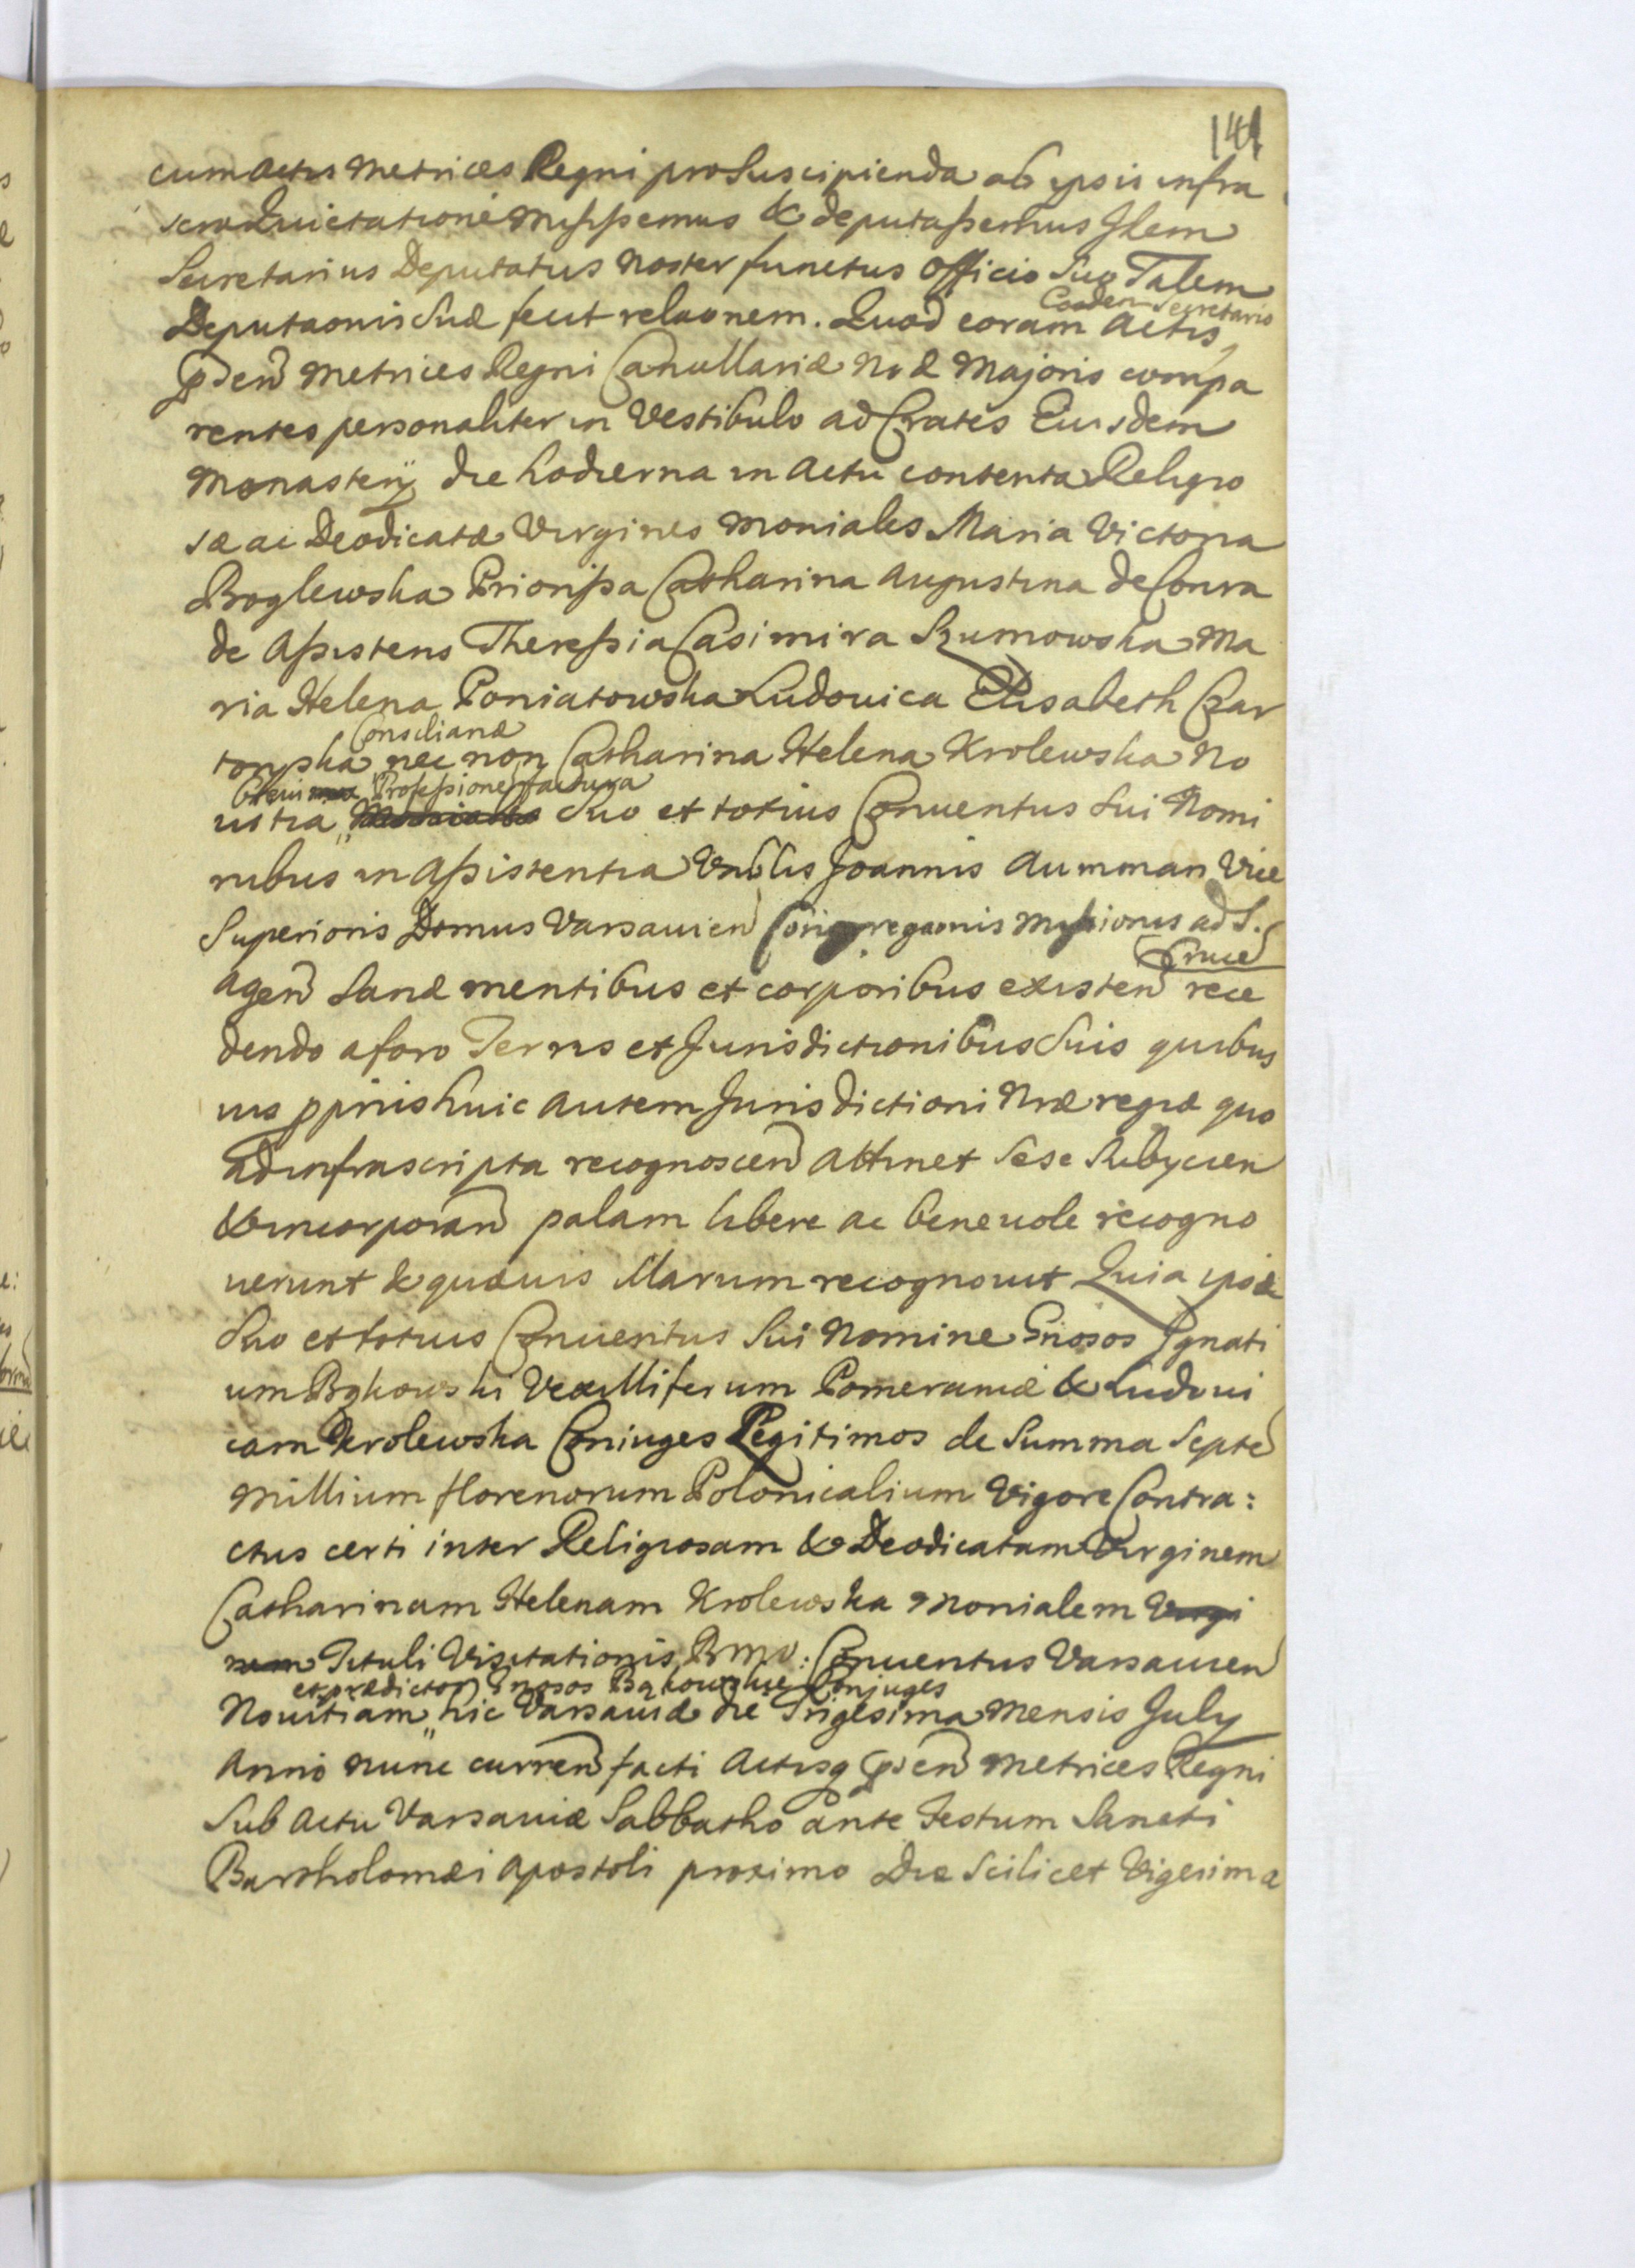 141
cum Actis Metrices Regni pro Suscipienda ab ipsis infra
scrō Quietatione misissemus & deputassemus Idem
Secretarius Deputatus Noster functus Officio Suo Talem
Coodem Secretario
Deputaonis Suæ fecit relaonem. Quod coram Actis
pñden Metrices Regni Cancellariæ Nræ Majoris compa
rentes personaliter in Vestibulo ad Crates Eiusdem
Monasterÿ die hodierna in Actu contenta Religio
sæ ac Deodicatæ Virgines Moniales Maria Victoria
Boglewska Priorissa Catharina Augustina de Conra
de Assistens Theressia Casimira Szumowska Ma
ria Helena Poniatowska Ludovica Elisabeth Czar
Consiliariæ
toryska nec non Catharina Helena Krolewska No
brevi Professionē factura
vitia Suo et totius Conventus Sui Nomi
nibus in Assistentia Vnblis Joannis Aumman Vice
Superioris Domus Varsavien Congregaonis Missionis ad S.
Cruce
agen Sanæ mentibus et corporibus existen rece
dendo a foro Terris et Jurisdictionibus Suis quibus
vis ppriis huic autem Jurisdictioni Nræ regiæ quo
ad infrascripta recognoscen attinet Sese Subycien
& incorporan palam libere ac benevole recogno
verunt & quævis Illarum recognovit Quia ipsæ
Suo et totius Conventus Sui Nomine Gnosos Ignati
um Bąkowski Vexilliferum Pomeraniæ & Ludovi
cam Krolewska Coniuges Legitimos de Summa Septē
Millium florenorum Polonicalium Vigore Contra:
ctus certi inter Religiosam & Deodicatam Virginem
Catharinam Helenam Krolewska Monialem Virgi
nem Tituli Visitationis BMV: Conventus Varsavien
et prædictos Gnosos Bąkowskie Conjuges
Novitiam hic Varsaviæ die Trigesima Mensis July
Anno nunc curren facti Actisq pñden Metrices Regni
Sub Actu Varsaviæ Sabbatho ante Festum Sancti
Bartholomæi Apostoli proximo Die Scilicet Vigesima